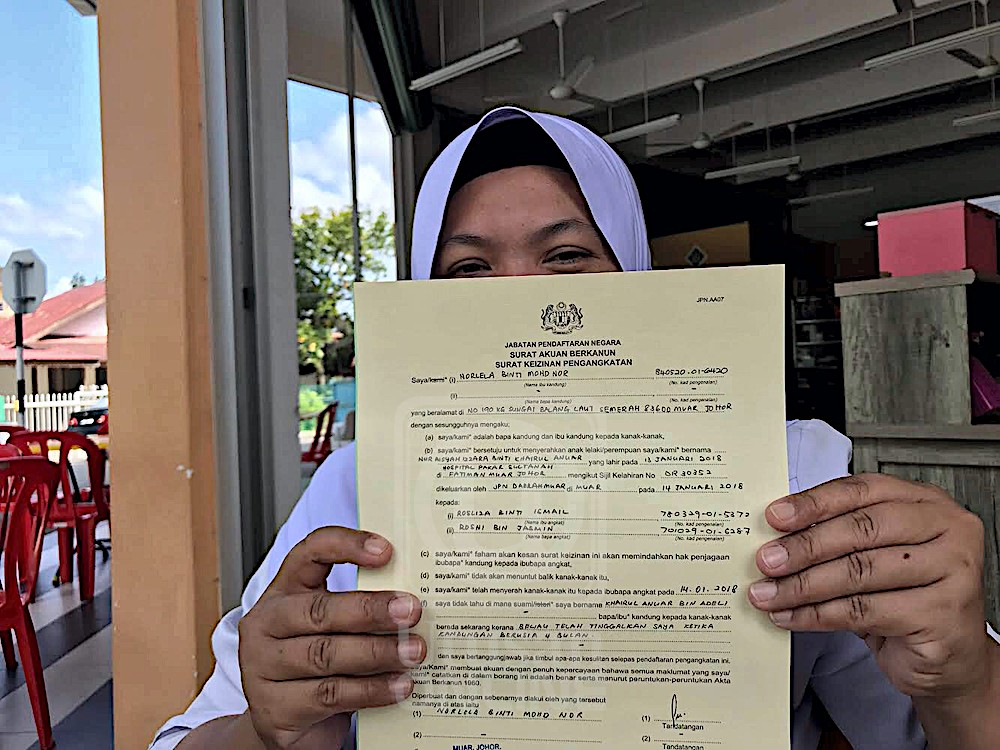 JPN.AA07
JABATAN PENDAFTARAN NEGARA
SURAT AKUAN BERKANUN
SURAT KEIZINAN PENGANGKATAN
Saya/kami* (i) NORLELA BINTI MOHD NOR 840520-01-6420
(Nama ibu kandung) (No. kad pengenalan)
(ii) - -
(Nama bapa kandung) (No. kad pengenalan)
yang beralamat di NO 190 KG SUNGAI BALANG LAUT SEMERAH 83600 MUAR JOHOR
dengan sesungguhnya mengaku;
(a) saya/kami* adalah bapa kandung dan ibu kandung kepada kanak-kanak,
(b) saya/kami* bersetuju untuk menyerahkan anak lelaki/perempuan saya/kami* bernama
NUR AISYAH UZARA BINTI KHAIRUL ANUAR yang lahir pada 13 JANUARI 2018
HOSPITAL PAKAR SULTANAH
di FATIMAH MUAR JOHOR mengikut Sijil Kelahiran No DR 30352
dikeluarkan oleh JPN DAERAH MUAR di MUAR pada 14 JANUARI 2018
kepada:
(i) ROSLIZA BINTI ISMAIL 780329-01-5372
(Nama ibu angkat) (No. kad pengenalan)
(ii) ROSNI BIN JASMIN 701029-01-6287
(Nama bapa angkat) (No. kad pengenalan)
(c) saya/kami* faham akan kesan surat keizinan ini akan memindahkan hak penjagaan
ibubapa* kandung kepada ibubapa angkat,
(d) saya/kami* tidak akan menuntut balik kanak-kanak itu,
(e) saya/kami* telah menyerah kanak-kanak itu kepada ibubapa angkat pada 14.01.2018
(f) saya tidak tahu di mana suami/isteri* saya bernama KHAIRUL ANUAR BIN ADELI
- bapa/ibu* kandung kepada kanak-kanak
berada sekarang kerana BELIAU TELAH TINGGALKAN SAYA KETIKA
KANDUNGAN BERUSIA 4 BULAN -
dan saya bertanggungjawab jika timbul apa-apa kesulitan selepas pendaftaran pengangkatan ini.
Saya/Kami* membuat akuan dengan penuh kepercayaan bahawa semua maklumat yang saya/
kami* catatkan di dalam borang ini adalah benar serta menurut peruntukan-peruntukan Akta
Akuan Berkanun 1960.
Diperbuat dan dengan sebenarnya diakui oleh yang tersebut
namanya di atas iaitu
(1) NORLELA BINTI MOHD NOR (1)
Tandatangan
(2) - (2) -
Tandatangan
MUAR, JOHOR.